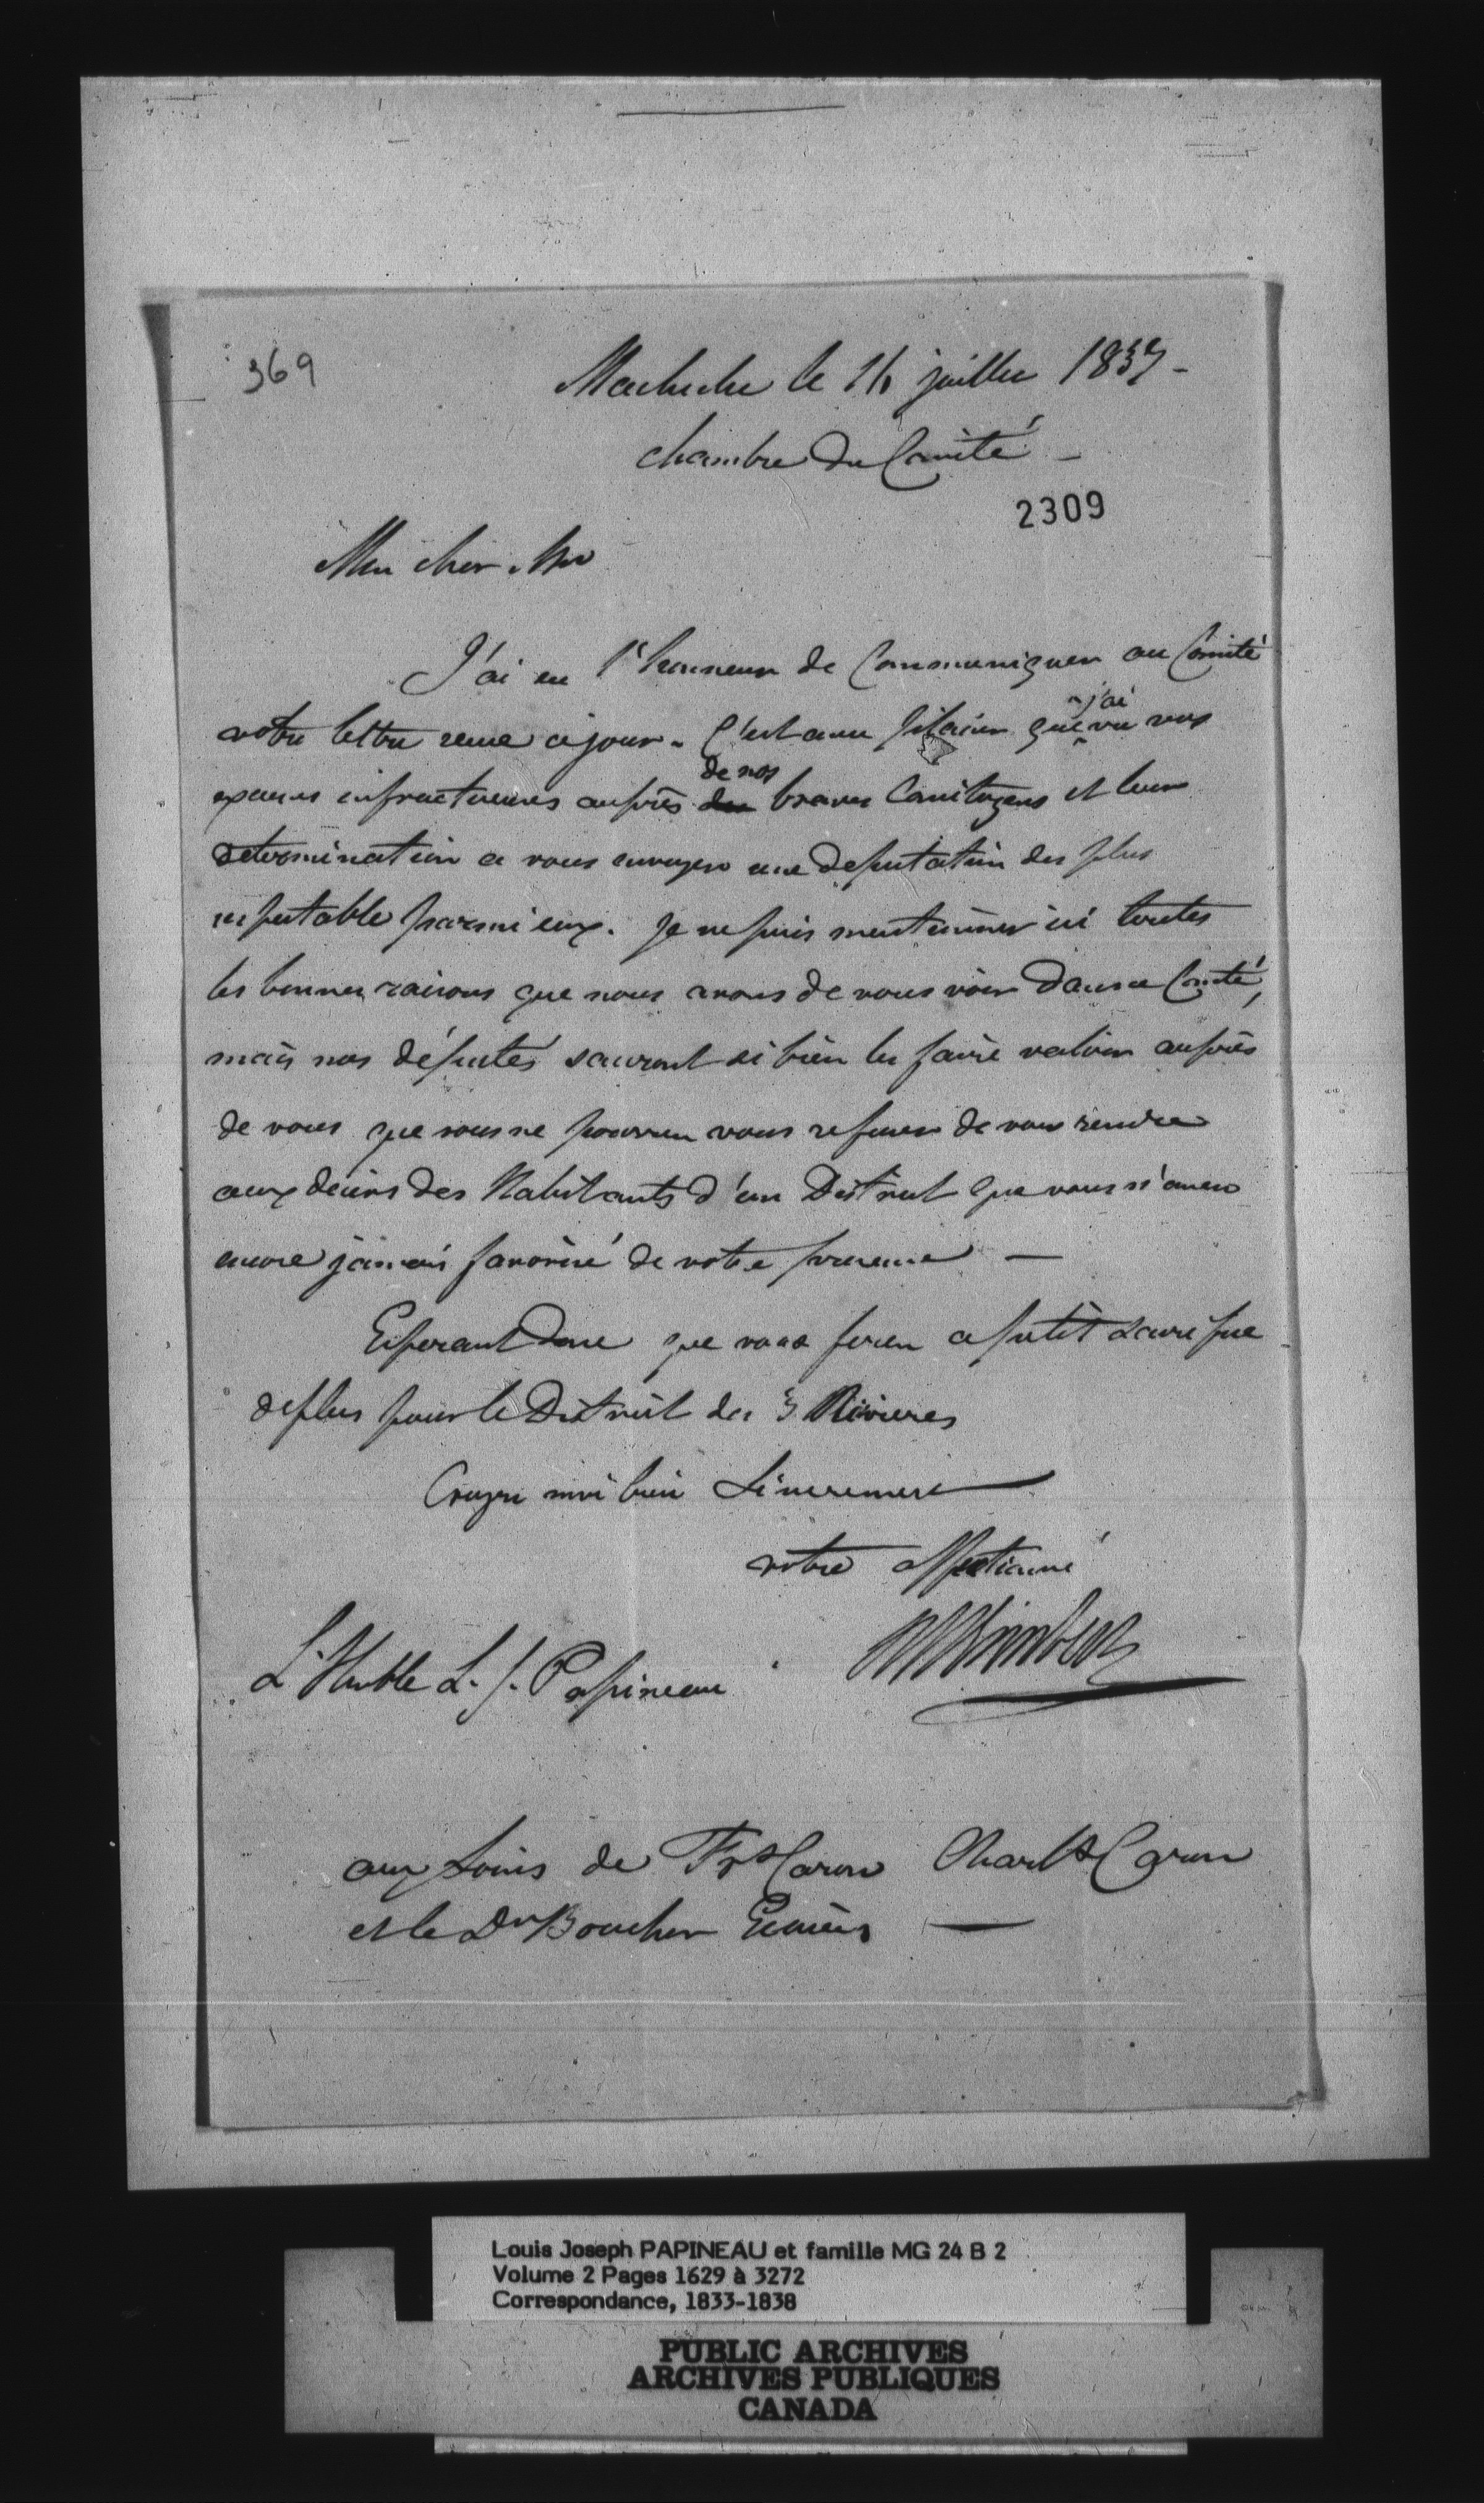 369
Machiche le 16 juillet 1837 -
chambre du Comité -
2309
Mon cher Mr
J'ai eu l'honneur de Communiquer au Comité
votre lettre recue ce jour - C'est avec plaisir que j'ai vu vos
excuses infructueuses auprès de nos braves Concitoyens et leur
determination a vous envoyer une deputation des plus
respectable parmi eux. Je ne puis mentionner ici toutes
les bonnes raisons que nous avons de vous voir dans ce Comté,
mais nos députés sauront si bien les faire valoir auprès
de vous que vous ne pourrez vous refuser de vous rendre
aux desirs des Habitants d'un District que vous n'avez
encore jamais favorisé de votre presence —
Esperant donc que vous ferez ce petit sacrifice
de plus pour le District des 3 Rivieres
Croyez moi bien Sincerement
votre affectionné
L'Hble L. J. Papineau
aux soins de Frs Caron Charls Caron
et le Dr Boucher Ecuiers —
Louis Joseph PAPINEAU et famille MG 24 B 2
Volume 2 Pages 1629 à 3272
Correspondance, 1833-1838
PUBLIC ARCHIVES
ARCHIVES PUBLIQUES
CANADA